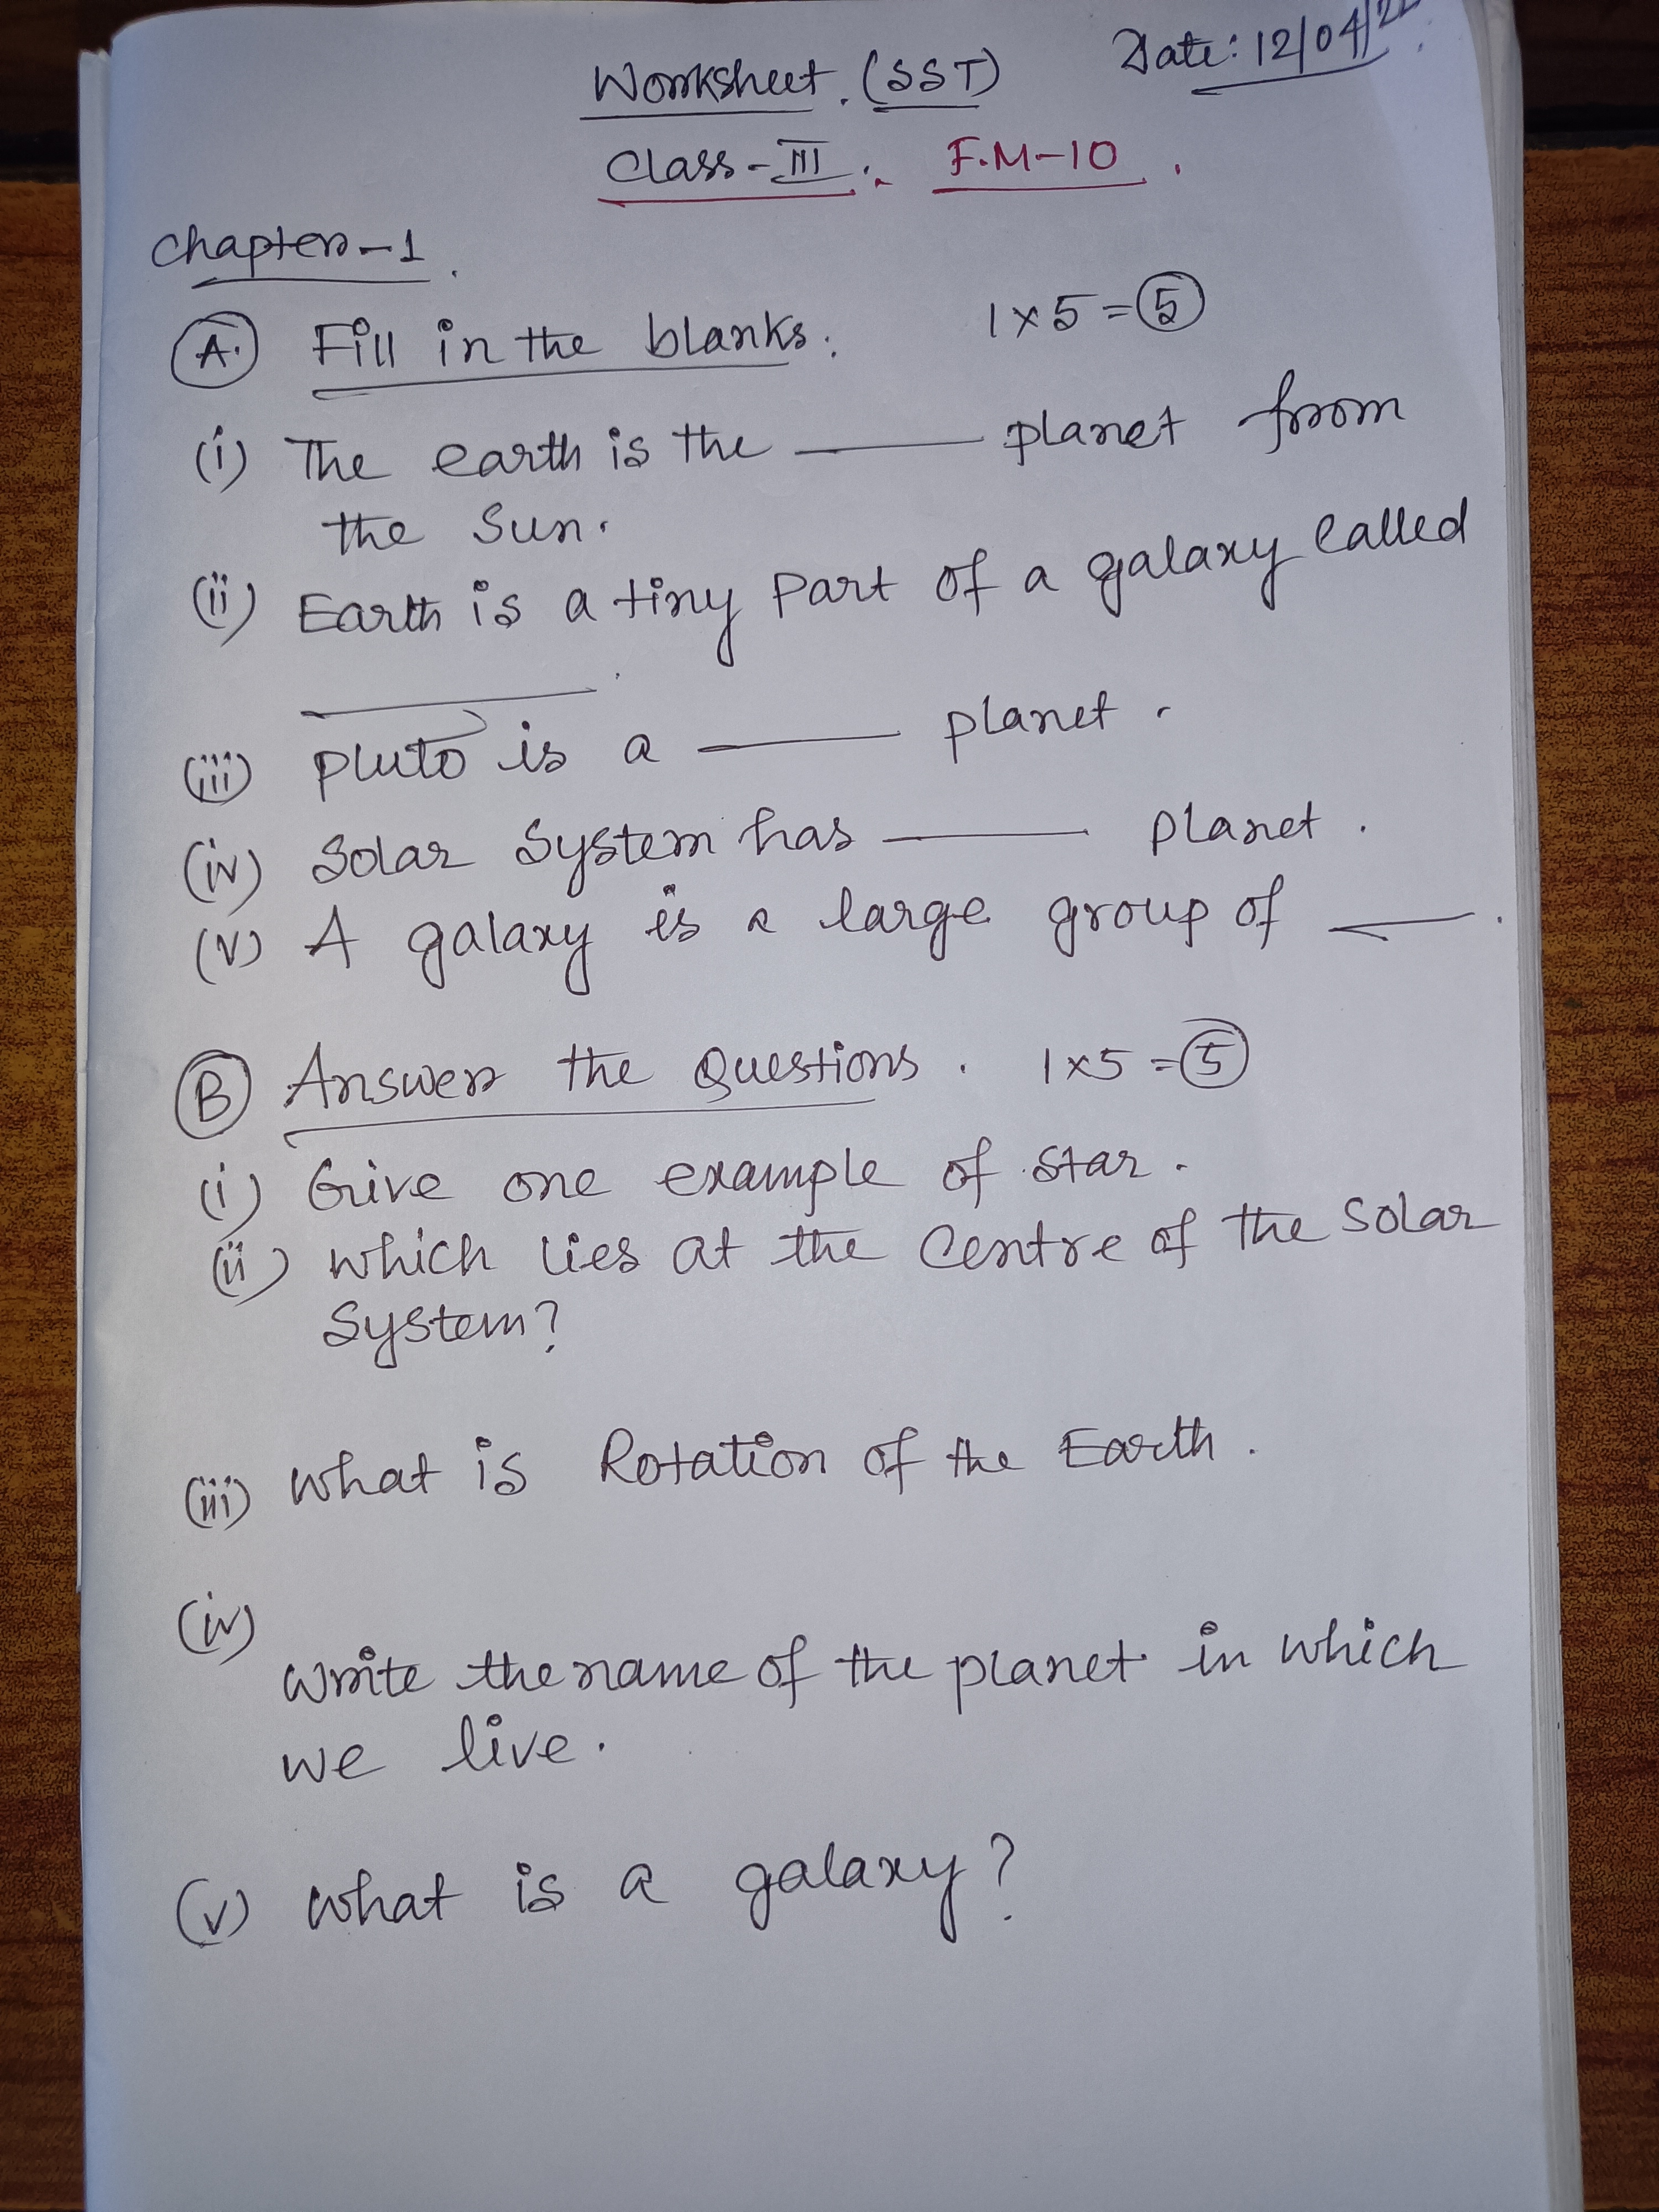 Worksheet. (SST) Date: 12/04/22
Class-III. F.M-10.
Chapter-1.
(A.) Fill in the blanks. 1×5=(5)
(i) The earth is the ____ planet from
the Sun.
(ii) Earth is a tiny Part of a galaxy Called
____.
(iii) Pluto is a ____ planet.
(iv) Solar System has ____ Planet.
(v) A galaxy is a large group of ____.
(B) Answer the Questions. 1×5=(5)
(i) Give one example of star.
(ii) which lies at the Centre of the Solar
System?
(iii) What is Rotation of the Earth.
(iv)
Write the name of the planet in which
we live.
(v) What is a galaxy?